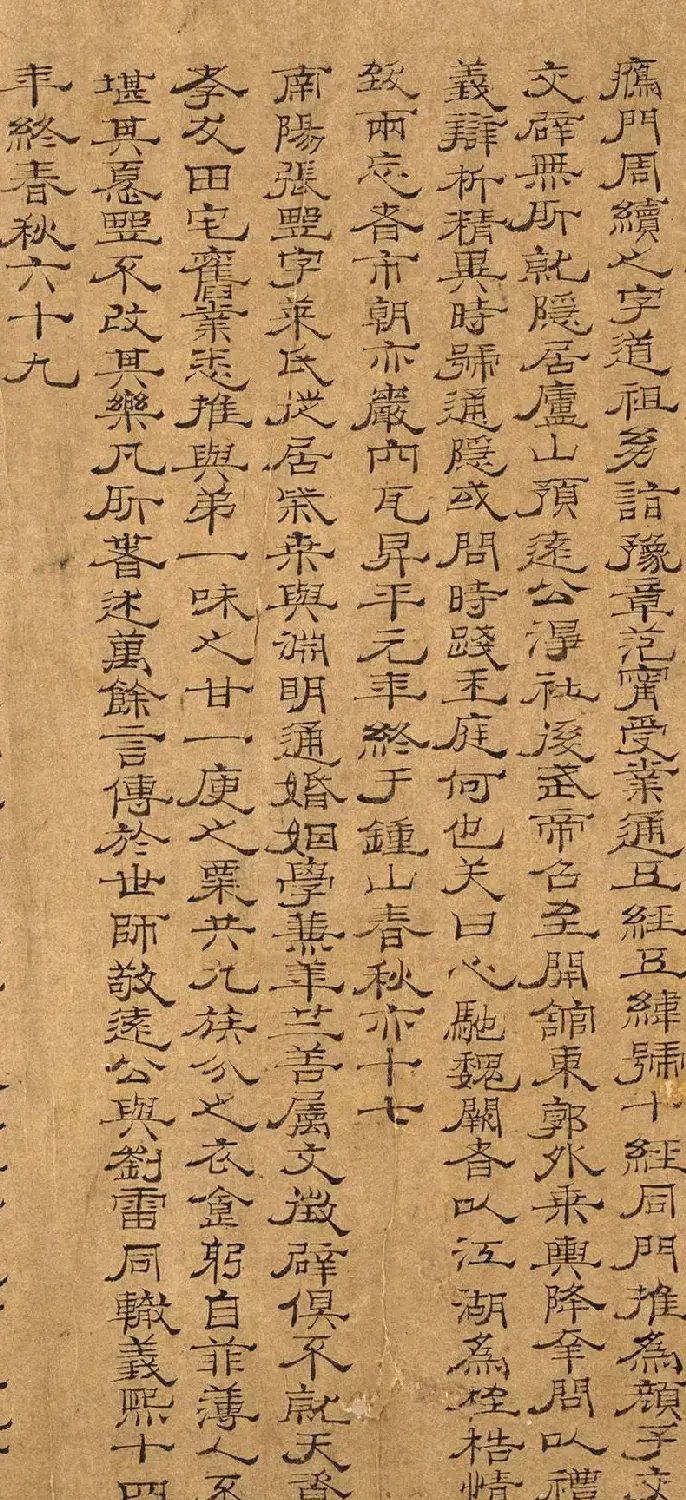 鴈門周續之字道祖幼詣豫章范甯受業通五經五緯號十經同門推為顏子交
交辟無所就隱居廬山預遠公淨社後武帝召至開館東郭外乘輿降幸問以禮
義辯析精異時號通隱或問時踐王庭何也笑曰心馳魏闕者以江湖為桎梏情
致兩忘者市朝亦巖穴耳昇平元年終于鍾山春秋亦十七
南陽張野字萊民徙居柴桑與淵明通婚姻學兼華竺善属文徵辟俱不就天資
孝友田宅舊業悉推與弟一味之甘一庾之粟共九族分之衣食躬自菲薄人不
堪其憂野不改其樂凡所著述萬餘言傳於世師敬遠公與劉雷同轍義熙十四
年終春秋六十九